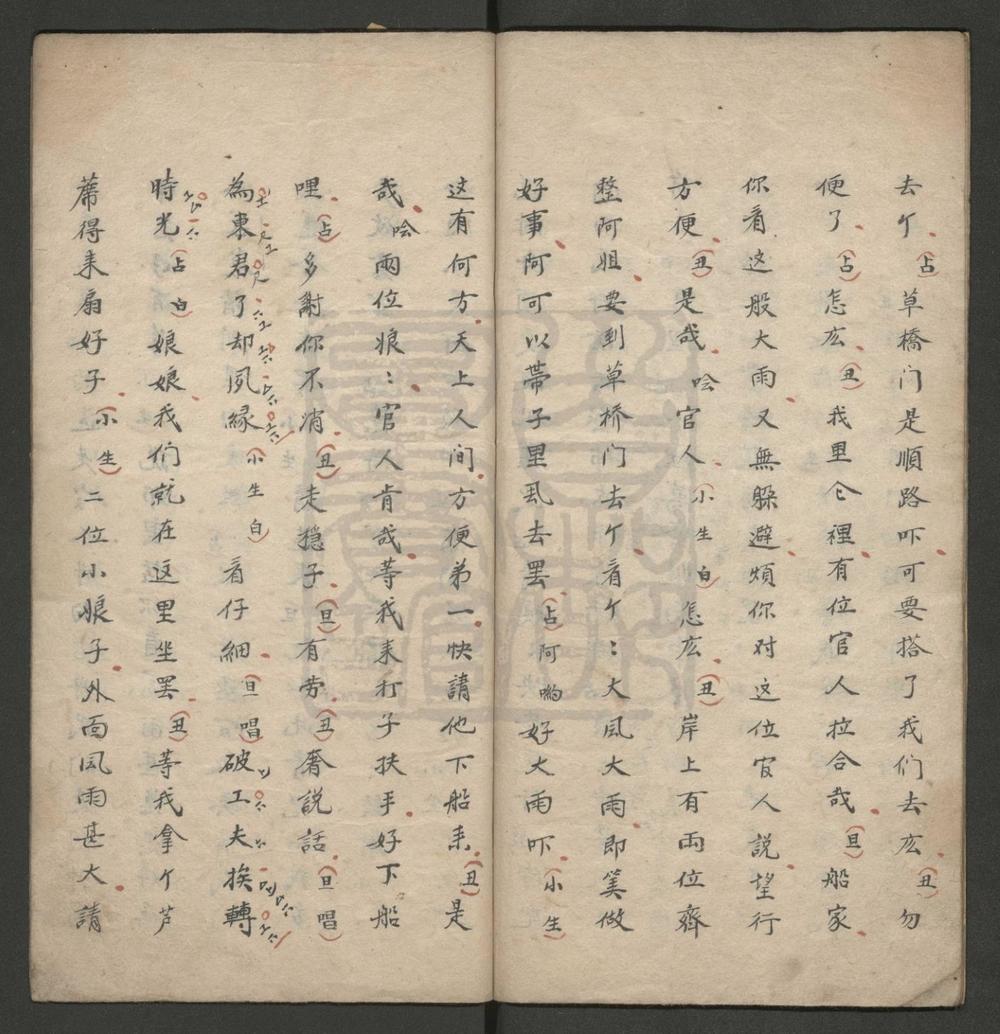 去亇(占)草橋门是順路吓可要搭了我们去庅(丑)勿
便了(占)怎庅(丑)我里仓裡有位官人拉合哉(旦)船家
你看这般大雨又無躲避煩你对这位官人説望行
方便(丑)是哉哙官人(小生白)怎庅(丑)岸上有両位齊
整阿姐要到草桥门去亇看亇〻大風大雨即筭做
好事阿可以帶子里厾去罢(占)阿喲好大雨吓(小生)
这有何方天上人间方便第一快請他下船来(丑)是
哉哙兩位娘〻官人肯哉等我来打子扶手好下船
哩(占)多謝你不消(丑)走穏子(旦)有劳(丑)奢説話(旦唱)
為東君了却夙縁(小生白)看仔細(旦唱)破工夫挨轉
時光(占白)娘娘我们就在这里坐罢(丑)等我拿亇芦
蓆得来扇好子(小生)二位小娘子外面風雨甚大請